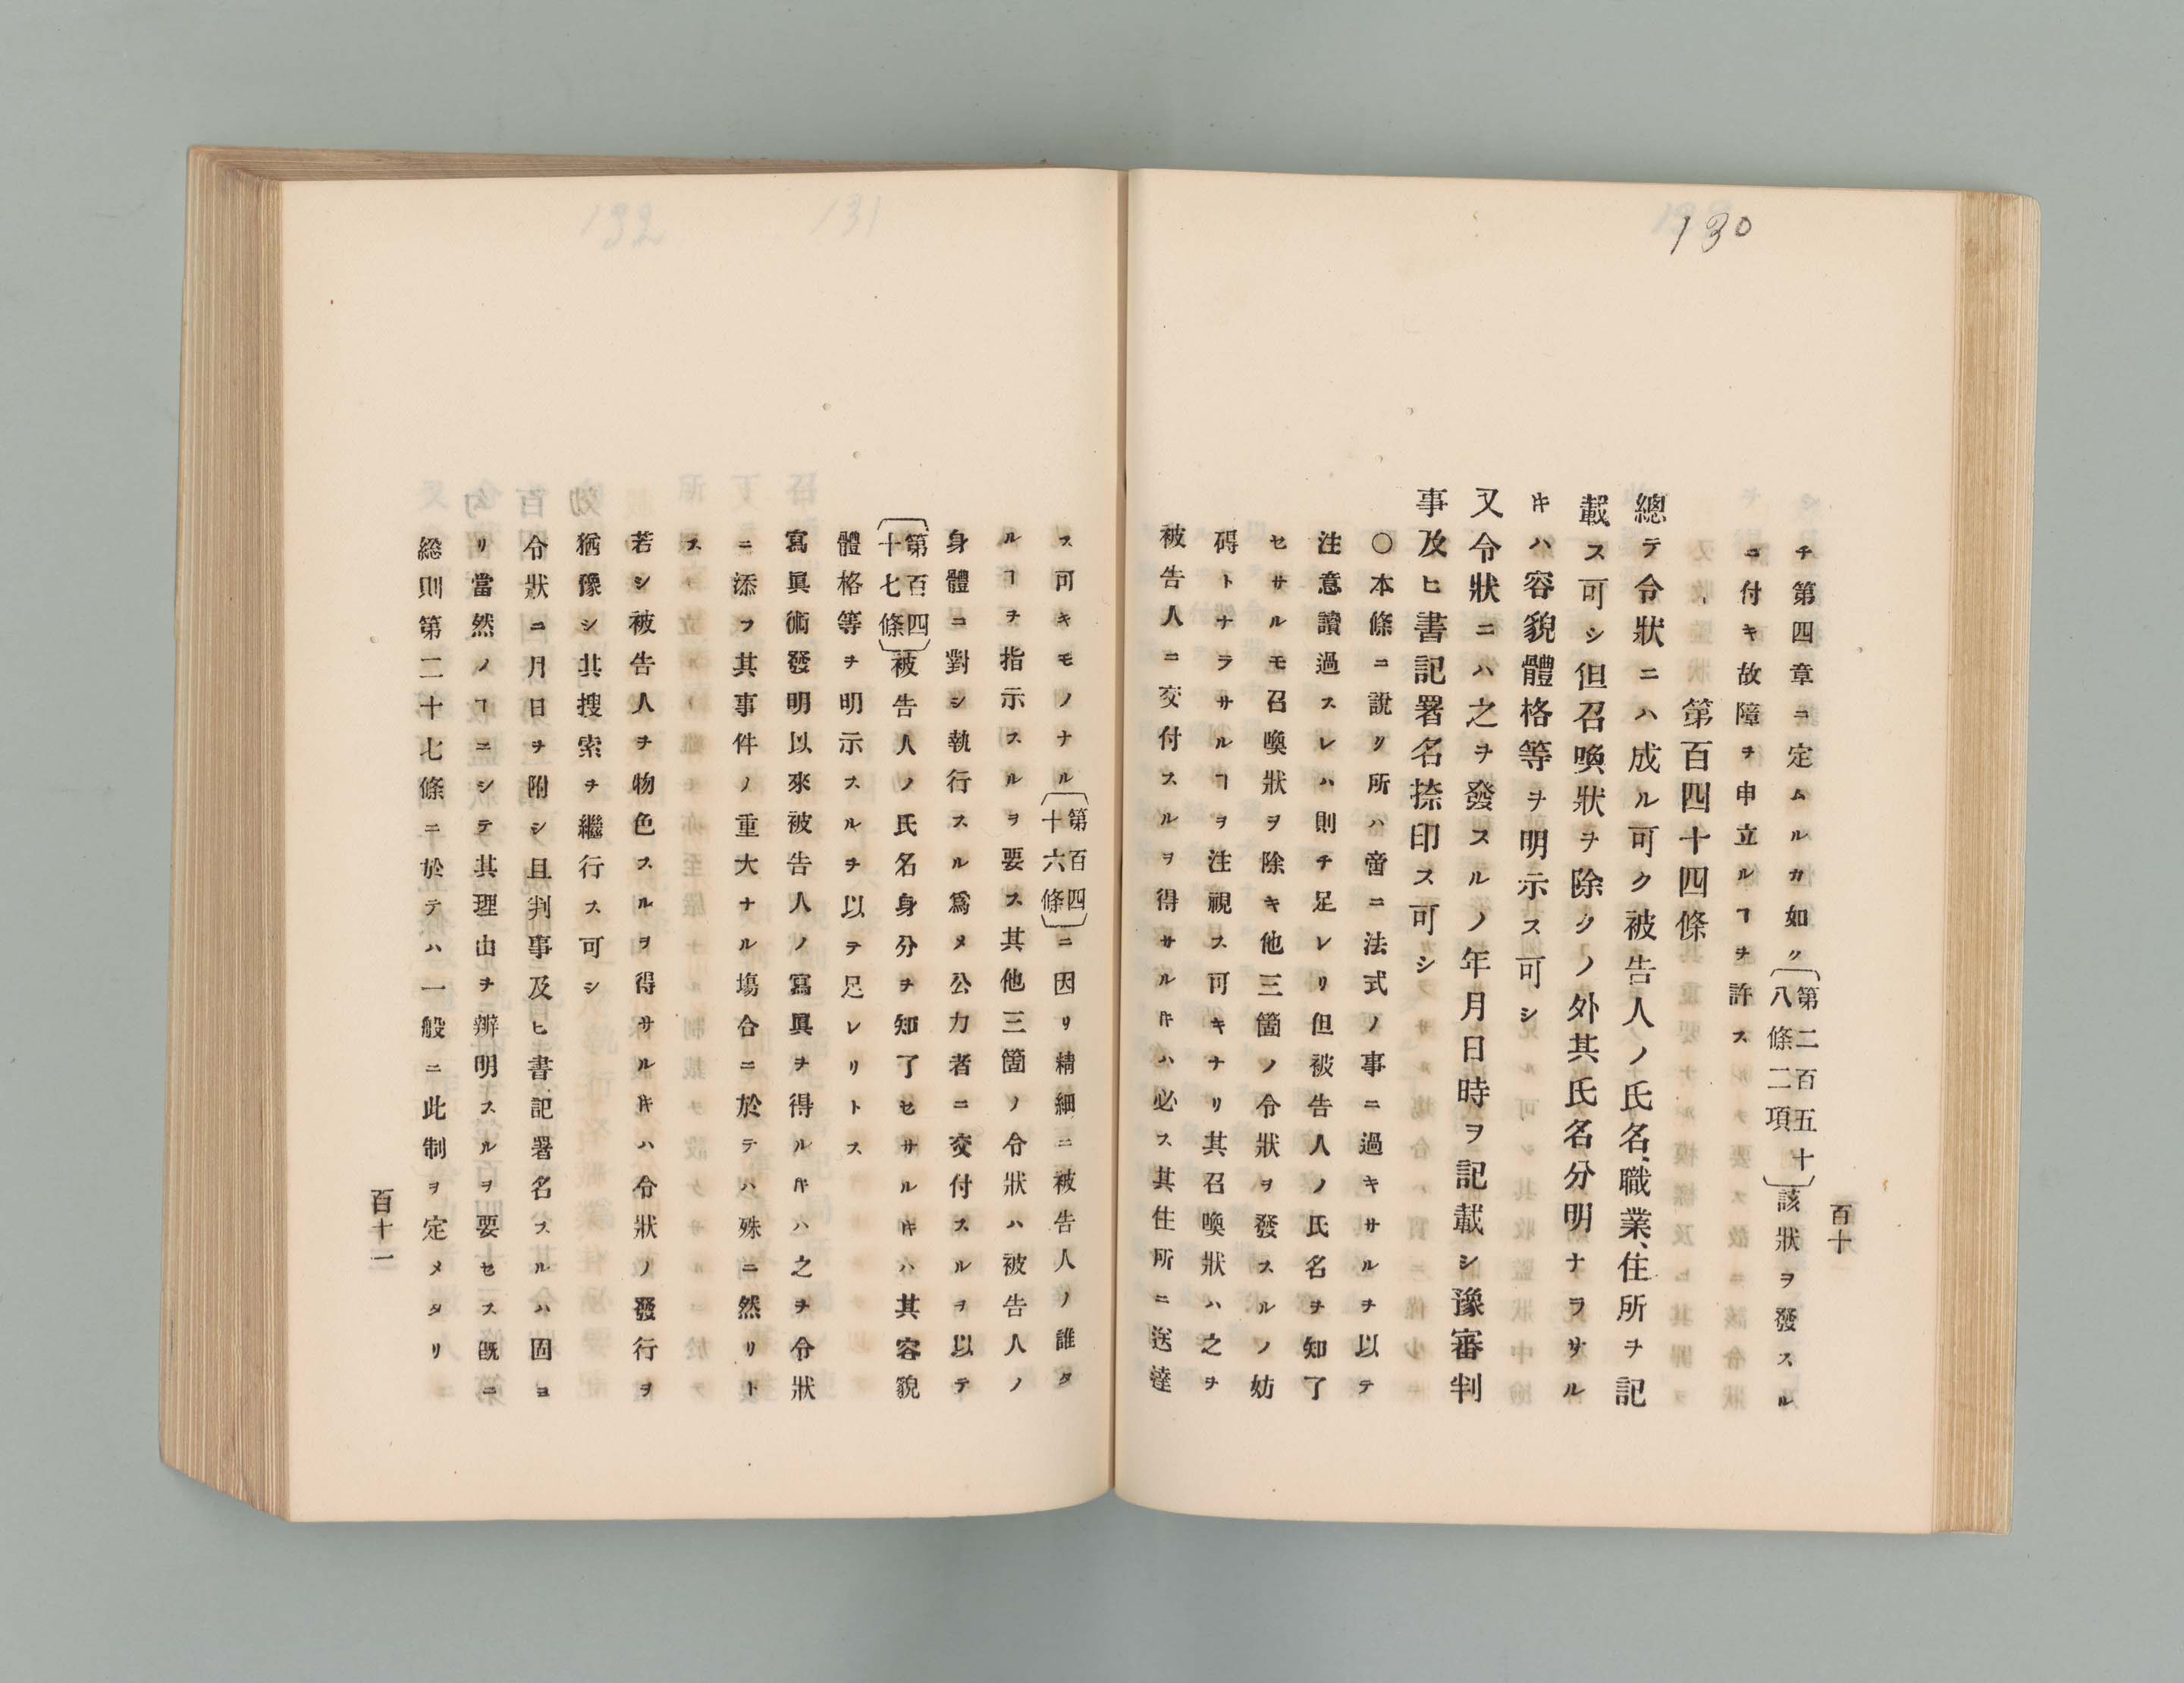 130
百十
チ第四章ニ定ムルカ如ク〔第二百五十八條二項〕該狀ヲ發スル
ニ付キ故障ヲ申立ルヿヲ許ス
第百四十四條
總テ令狀ニハ成ル可ク被告人ノ氏名、職業、住所ヲ記
載ス可シ但召喚狀ヲ除クノ外其氏名分明ナラサル
キハ容貌體格等ヲ明示ス可シ
又令狀ニハ之ヲ發スルノ年月日時ヲ記載シ豫審判
事及ヒ書記署名捺印ス可シ
〇本條ニ說ク所ハ啻ニ法式ノ事ニ過キサルヲ以テ
注意讀過スレハ則チ足レリ但被告人ノ氏名ヲ知了
セサルモ召喚狀ヲ除キ他三箇ノ令狀ヲ發スルノ妨
碍トナラサルヿヲ注視ス可キナリ其召喚狀ハ之ヲ
被告人ニ交付スルヲ得サルキハ必ス其住所ニ送達
131
132
ス可キモノナル〔第百四十六條〕ニ因リ精細ニ被告人ノ誰タ
ルヿヲ指示スルヲ要ス其他三箇ノ令狀ハ被告人ノ
身體ニ對シ執行スル爲メ公力者ニ交付スルヲ以テ
〔第百四十七條〕被告人ノ氏名身分ヲ知了セサルキハ其容貌
體格等ヲ明示スルヲ以テ足レリトス
寫眞術發明以來被告人ノ寫眞ヲ得ルキハ之ヲ令狀
ニ添フ其事件ノ重大ナル塲合ニ於テハ殊ニ然リト
ス
若シ被告人ヲ物色スルヲ得サルキハ令狀ノ發行ヲ
猶豫シ其搜索ヲ繼行ス可シ
令狀ニ月日ヲ附シ且判事及ヒ書記署名スルハ固ヨ
リ當然ノヿニシテ其理由ヲ辨明スルヲ要セス既ニ
総則第二十七條ニ於テハ一般ニ此制ヲ定メタリ
百十一